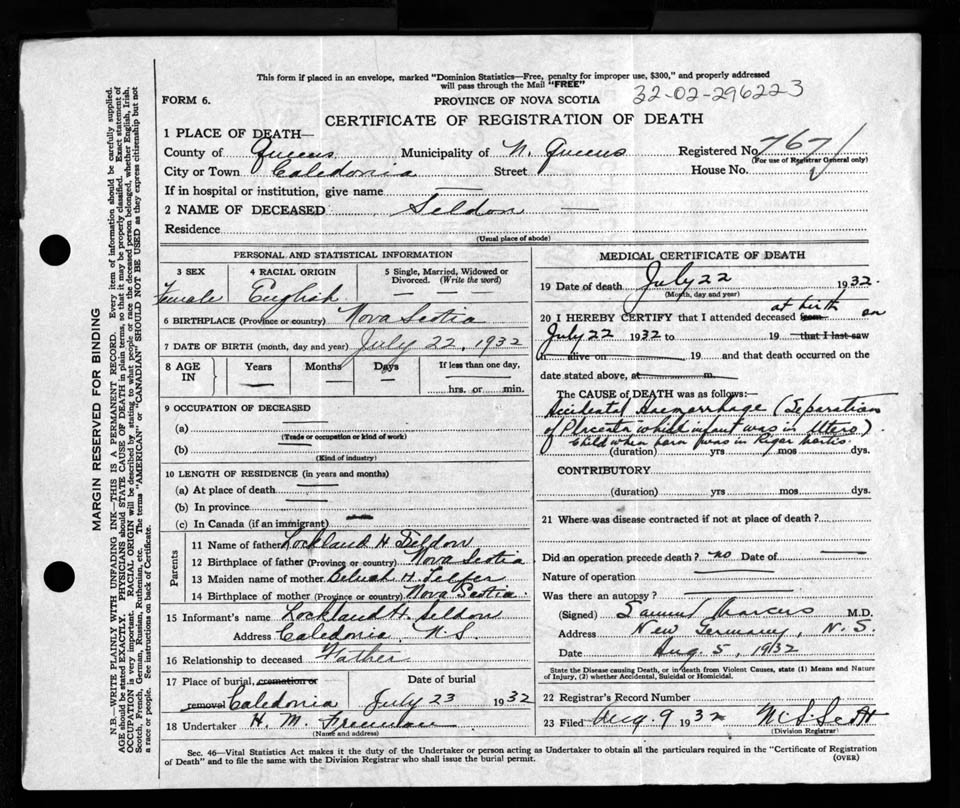 This form if placed in an envelope, marked "Dominion Statistics—Free, penalty for improper use, $300," and properly addressed
will pass through the Mail "FREE"
32-02-296223
FORM 6.
PROVINCE OF NOVA SCOTIA
CERTIFICATE OF REGISTRATION OF DEATH
1 PLACE OF DEATH—
County of Queens Municipality of N. Queens Registered No. 7671
(For use of Registrar General only)
City or Town Caledonia Street House No.
If in hospital or institution, give name —
2 NAME OF DECEASED Seldon —
Residence
(Usual place of abode)
PERSONAL AND STATISTICAL INFORMATION
3 SEX 4 RACIAL ORIGIN 5 Single, Married, Widowed or Divorced. (Write the word)
Female English — — —
6 BIRTHPLACE (Province or country) Nova Scotia
7 DATE OF BIRTH (month, day and year) July 22, 1932
8 AGE IN Years Months Days If less than one day,
— — — hrs. or min.
9 OCCUPATION OF DECEASED
(a) —
(Trade or occupation or kind of work)
(b) —
(Kind of industry)
10 LENGTH OF RESIDENCE (in years and months)
(a) At place of death —
(b) In province —
(c) In Canada (if an immigrant) —
Parents
11 Name of father Lockland H Seldon
12 Birthplace of father (Province or country) Nova Scotia
13 Maiden name of mother H. Telfer
14 Birthplace of mother (Province or country) Nova Scotia
15 Informant's name Lockland H. Seldon
Address Caledonia, N.S.
16 Relationship to deceased Father
17 Place of burial, cremation or removal Date of burial
Caledonia July 23 1932
18 Undertaker H. M. Freeman
(Name and address)
MEDICAL CERTIFICATE OF DEATH
19 Date of death July 22 1932
(Month, day and year)
20 I HEREBY CERTIFY that I attended deceased from at birth on
July 22 1932 to 19 that I last saw
h alive on 19 and that death occurred on the
date stated above, at m.
The CAUSE of DEATH was as follows:—
Accidental Haemorrhage (Separation
of Placenta while infant was in Utero)
Child when born was in Rigor Mortis.
(duration) yrs mos dys.
CONTRIBUTORY
(duration) yrs mos dys.
21 Where was disease contracted if not at place of death?
Did an operation precede death? no Date of —
Nature of operation —
Was there an autopsy? —
(Signed) Samuel Marcus M.D.
Address New Germany, N.S.
Date Aug. 5, 1932
State the Disease causing Death, or in death from Violent Causes, state (1) Means and Nature
of Injury, (2) whether Accidental, Suicidal or Homicidal.
22 Registrar's Record Number
23 Filed Aug. 9 1932
(Division Registrar)
Sec. 46—Vital Statistics Act makes it the duty of the Undertaker or person acting as Undertaker to obtain all the particulars required in the "Certificate of Registration
of Death" and to file the same with the Division Registrar who shall issue the burial permit.
(OVER)
MARGIN RESERVED FOR BINDING
N.B.—WRITE PLAINLY WITH UNFADING INK—THIS IS A PERMANENT RECORD. Every item of information should be carefully supplied.
AGE should be stated EXACTLY. PHYSICIANS should STATE CAUSE OF DEATH in plain terms, so that it may be properly classified. Exact statement of
OCCUPATION is very important. RACIAL ORIGIN will be described by stating to what people or race the deceased person belonged, whether English, Irish,
Scotch, French, German, Russian, Ruthenian, etc. The terms "AMERICAN" or "CANADIAN" SHOULD NOT BE USED as they express citizenship but not
a race or people. See instructions on back of Certificate.